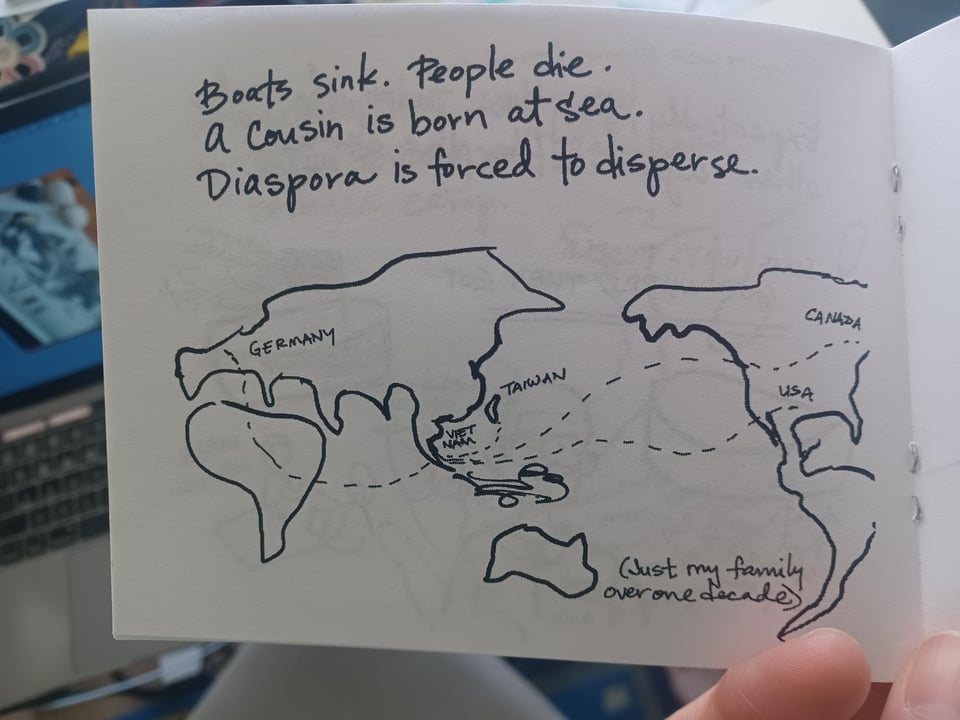 Boats sink. People die.
A cousin is born at sea.
Diaspora is forced to disperse.
GERMANY
CANADA
TAIWAN
USA
VIET
NAM
(Just my family
over one decade)